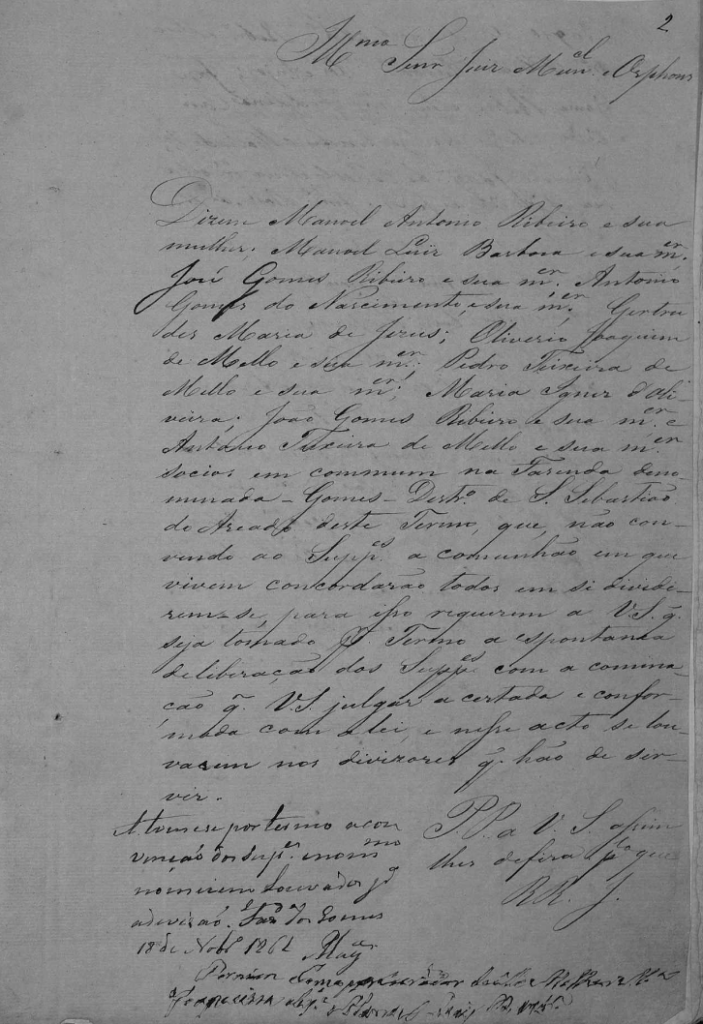 2
Illmo Senr Juiz Munel e Orphons
Dizem Manoel Antonio Ribeiro e sua
mulher; Manoel Luiz Barbosa e sua mer.
José Gomes Ribeiro e sua mer. Antonio
Gomes do Nascimento e sua mer; Gertru
des Maria de Jezus; Oliverio Joaquim
de Mello e sua mer; Pedro Teixeira de
Mello e sua mer; Maria Ignez d'oli-
veira; João Gomes Ribeiro e sua mer. e
Antonio Teixeira de Mello e sua mer
socios em commum na Fazenda deno-
minada - Gomes - Destro. de S. Sebastião
do Areado deste Termo, que, não con-
vindo ao Suppes a comunhão em que
vivem concordarão todos em si dividi-
rem-se, para isso requerem a V.S. q.
seja tomado p. Termo a espontania
deliberação dos Suppes com a comina-
ção q. V.S. julgar acertada e confor-
mada com a lei, e nesse acto se lou-
varem nos divizores q. hão de ser-
vir.
P.P. a V. S. assim
lhes defira plo que
RR. J.
A tome se por termo a con
venção dos Supes. e no mmo
nomeiem Louvados pa
a devizão. Fazda dos Gomes
18 de Nobr 1862